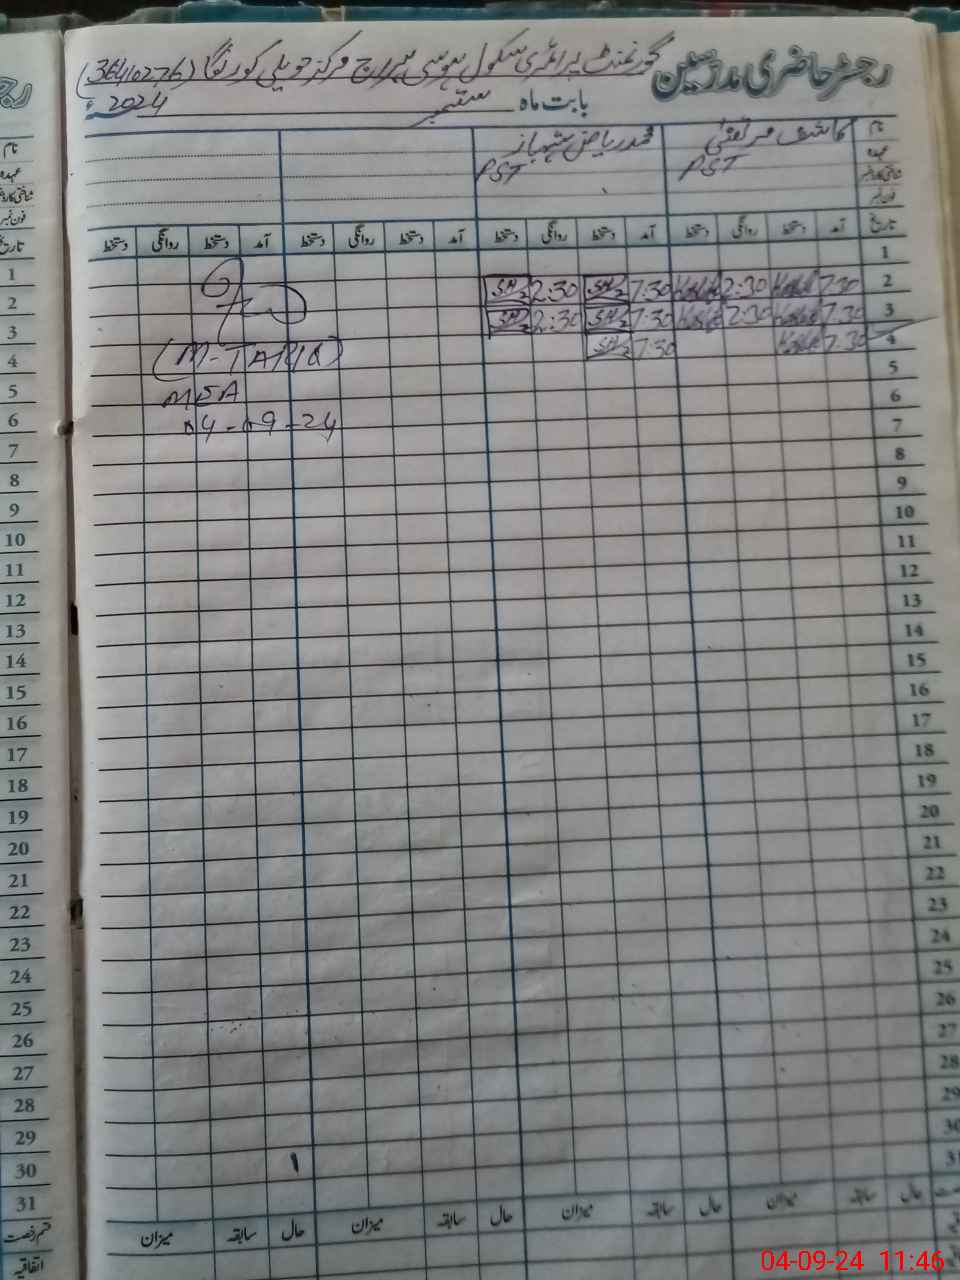 رجسٹر حاضری مدرسین گورنمنٹ پرائمری سکول مرکز حویلی کورنگا (36410276)
بابت ماہ ستمبر 2024ء
نام کاشف مرتضیٰ محمد ریاض شہباز
عہدہ PST PST
شناختی کارڈ نمبر
فون نمبر
تاریخ آمد دستخط روانگی دستخط آمد دستخط روانگی دستخط آمد دستخط روانگی دستخط آمد دستخط روانگی دستخط
1
2 7:30 2:30 7:30 2:30
3 7:30 2:30 7:30 2:30
4 7:30 7:30
(M-TARIQ)
5
MEA
6
04-09-24
7
8
9
10
11
12
13
14
15
16
17
18
19
20
21
22
23
24
25
26
27
28
29
30
31
حال سابقہ میزان حال سابقہ میزان حال سابقہ میزان حال سابقہ میزان
تاریخ
1
2
3
4
5
6
7
8
9
10
11
12
13
14
15
16
17
18
19
20
21
22
23
24
25
26
27
28
29
30
31
قسم رخصت
اتفاقیہ
04-09-24 11:46